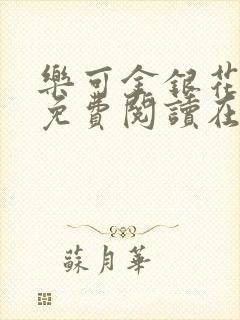 樂可金銀花
免費閱讀在
蘇月華